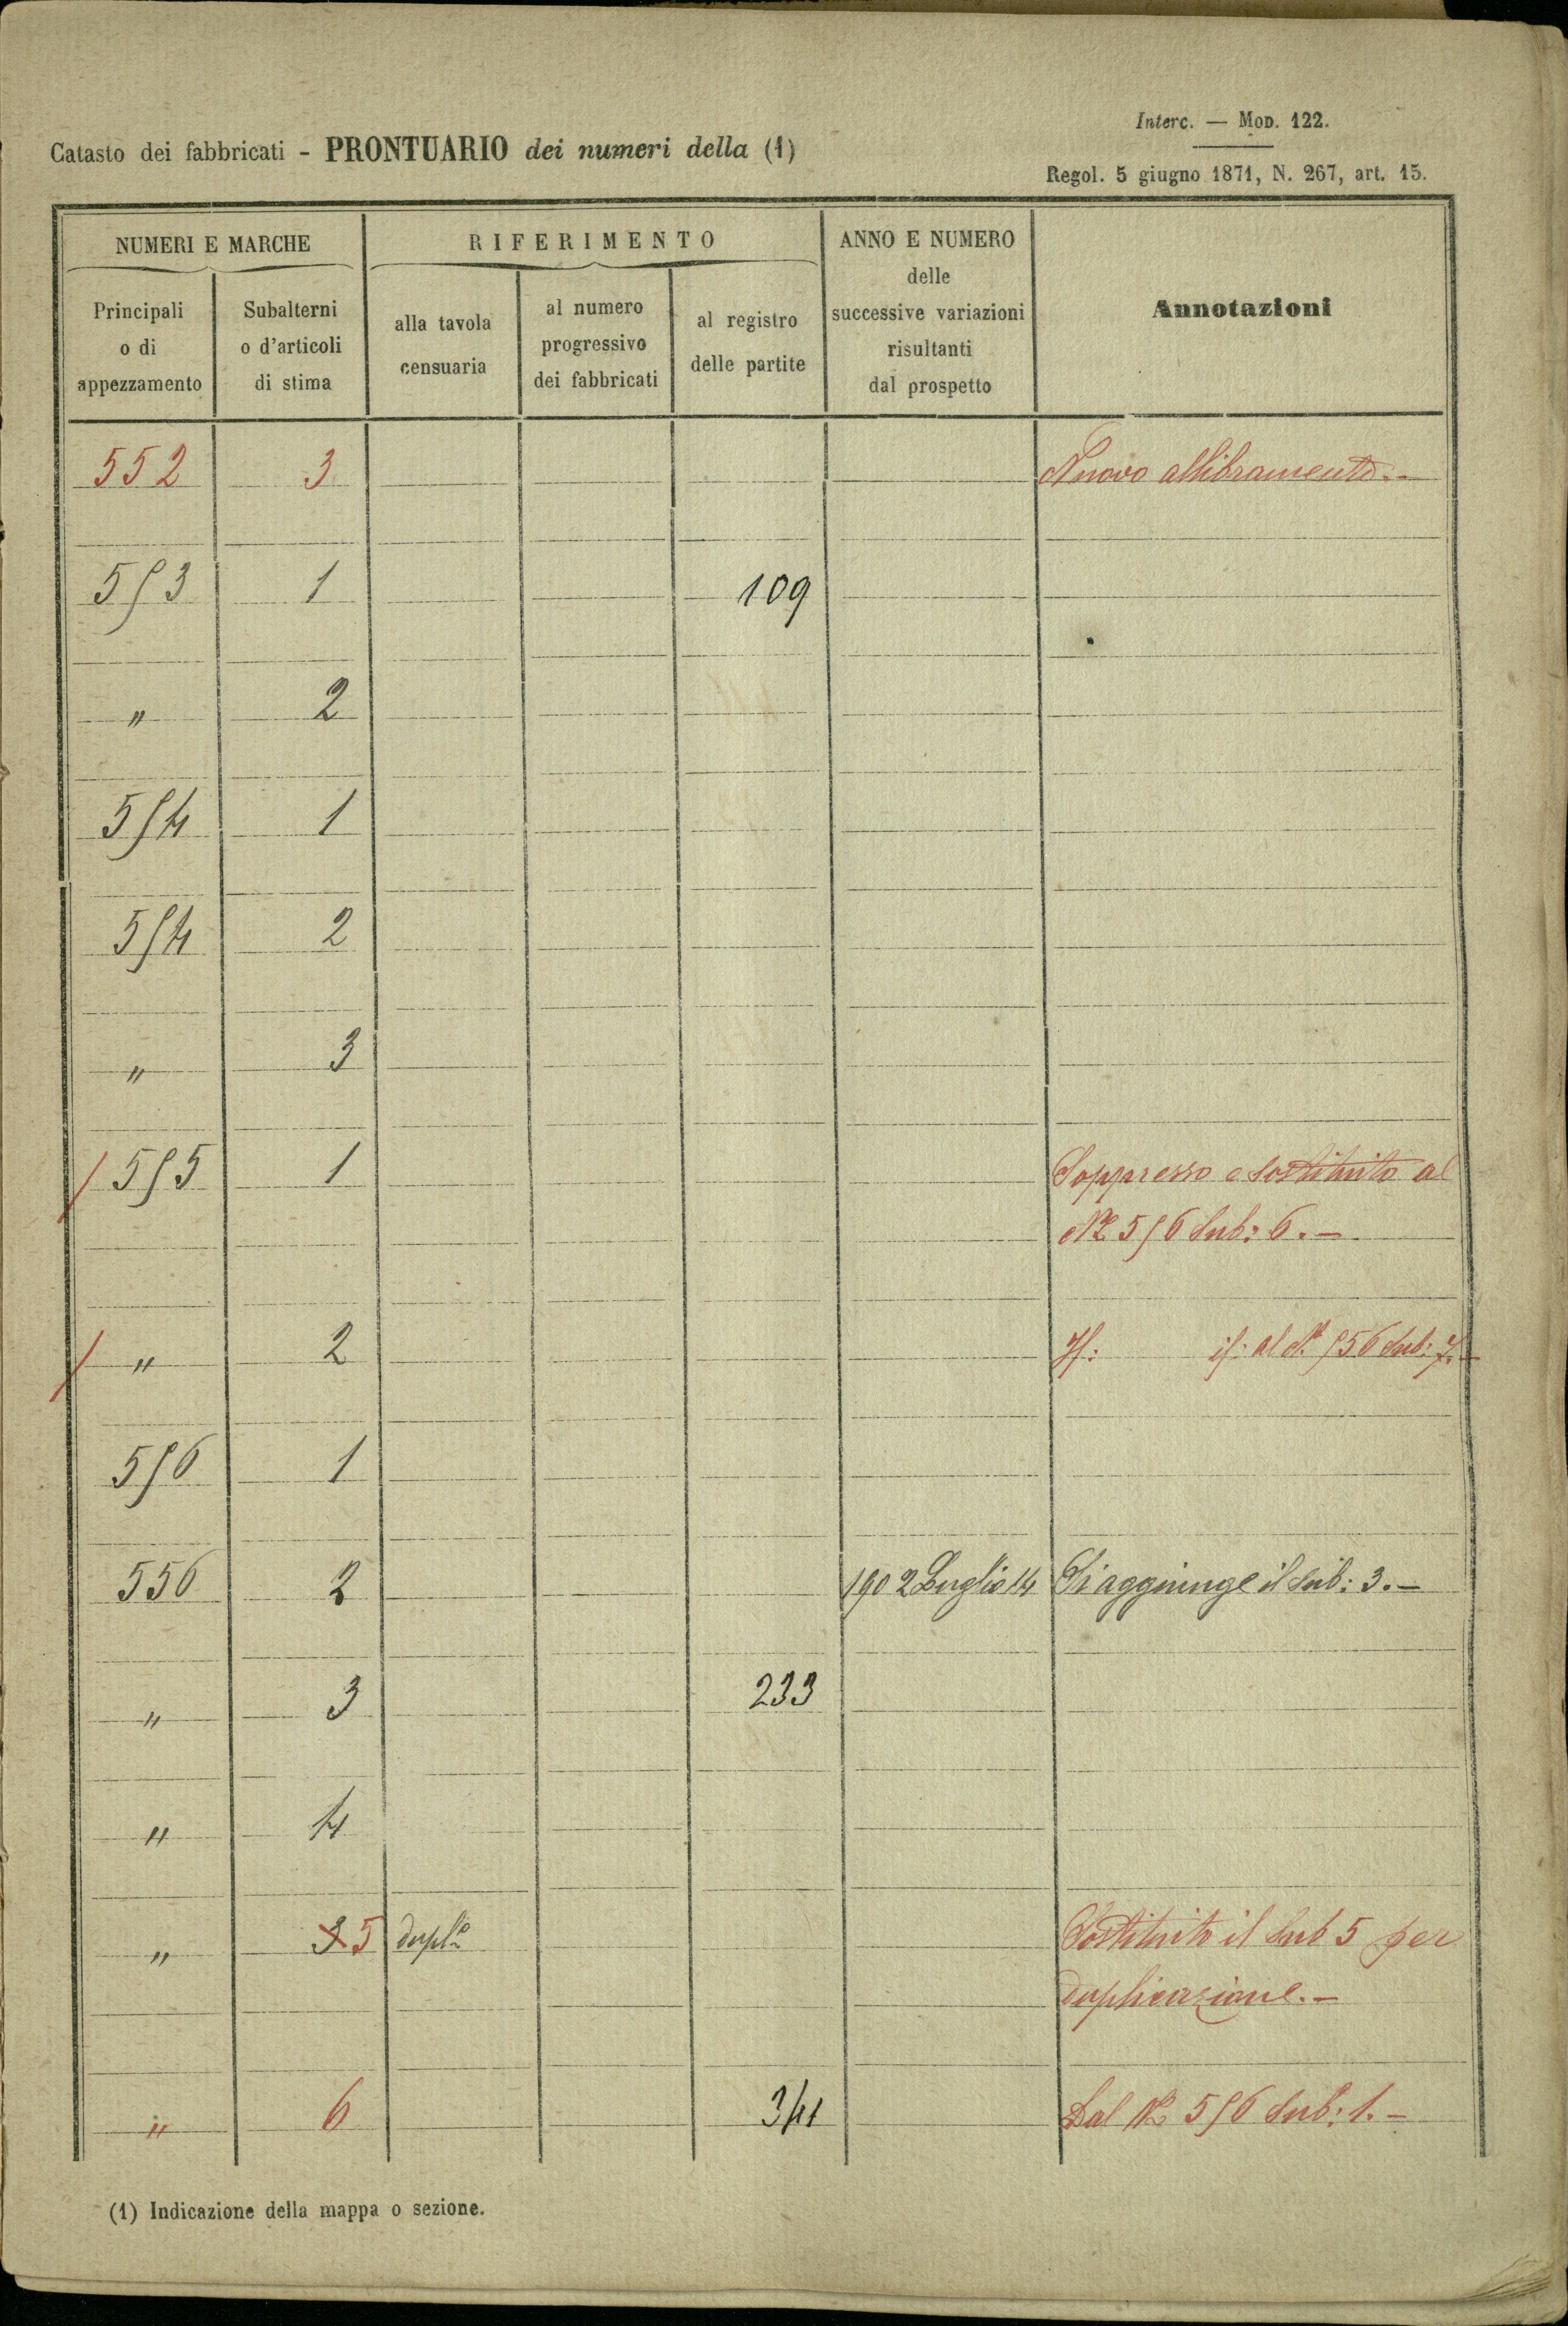 Interc. — Mod. 122.
Catasto dei fabbricati - PRONTUARIO dei numeri della (1)
Regol. 5 giugno 1871, N. 267, art. 15.
NUMERI E MARCHE RIFERIMENTO ANNO E NUMERO delle successive variazioni risultanti dal prospetto Annotazioni
Principali o di appezzamento Subalterni o d'articoli di stima alla tavola censuaria al numero progressivo dei fabbricati al registro delle partite
552 3 Nuovo allibramento.-
553 1 109
" 2
554 1
554 2
" 3
555 1 Soppresso e sostituito al
N° 556 Sub: 6.-
" 2 If: if: al N° 556 Sub: 7.-
556 1
556 2 1902 Luglio 14 Si aggiunge il Sub: 3.-
" 3 233
" 4
" 3 5 dupl° Sostituito il Sub 5 per
duplicazione.-
" 6 341 Dal N° 556 Sub: 1.-
(1) Indicazione della mappa o sezione.